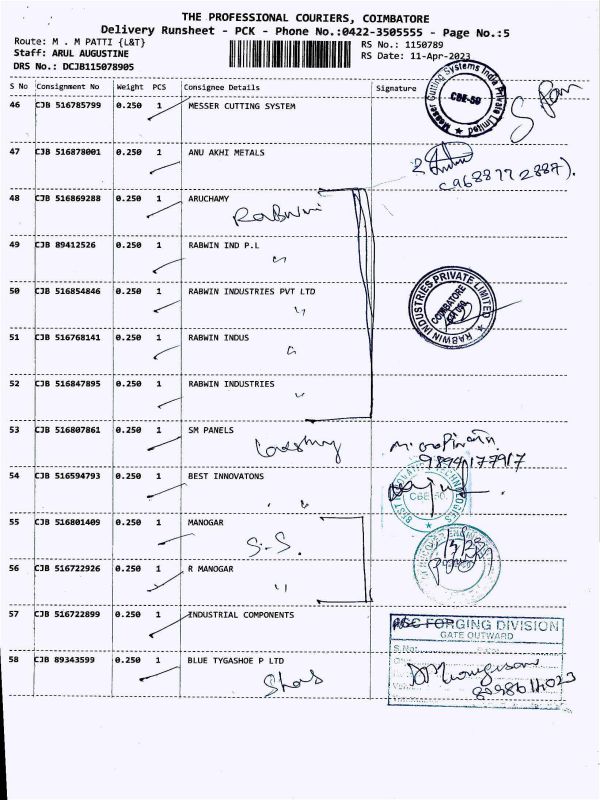 THE PROFESSIONAL COURIERS, COIMBATORE
Delivery Runsheet - PCK - Phone No.:0422-3505555 - Page No.:5
Route: M . M PATTI {L&T}
RS No.: 1150789
Staff: ARUL AUGUSTINE
RS Date: 11-Apr-2023
DRS No.: DCJB115078905
S No Consignment No Weight PCS Consignee Details Signature
46 CJB 516785799 0.250 1 MESSER CUTTING SYSTEM
Messer Cutting Systems India Private Limited
CBE-50
47 CJB 516878001 0.250 1 ANU AKHI METALS
48 CJB 516869288 0.250 1 ARUCHAMY
RABWIN
49 CJB 89412526 0.250 1 RABWIN IND P.L
50 CJB 516854846 0.250 1 RABWIN INDUSTRIES PVT LTD
RABWIN INDUSTRIES PRIVATE LIMITED
COIMBATORE
51 CJB 516768141 0.250 1 RABWIN INDUS
52 CJB 516847895 0.250 1 RABWIN INDUSTRIES
53 CJB 516807861 0.250 1 SM PANELS
54 CJB 516594793 0.250 1 BEST INNOVATONS
CBE-50
55 CJB 516801409 0.250 1 MANOGAR
S.-S.
56 CJB 516722926 0.250 1 R MANOGAR
57 CJB 516722899 0.250 1 INDUSTRIAL COMPONENTS
FORGING DIVISION
GATE OUTWARD
58 CJB 89343599 0.250 1 BLUE TYGASHOE P LTD